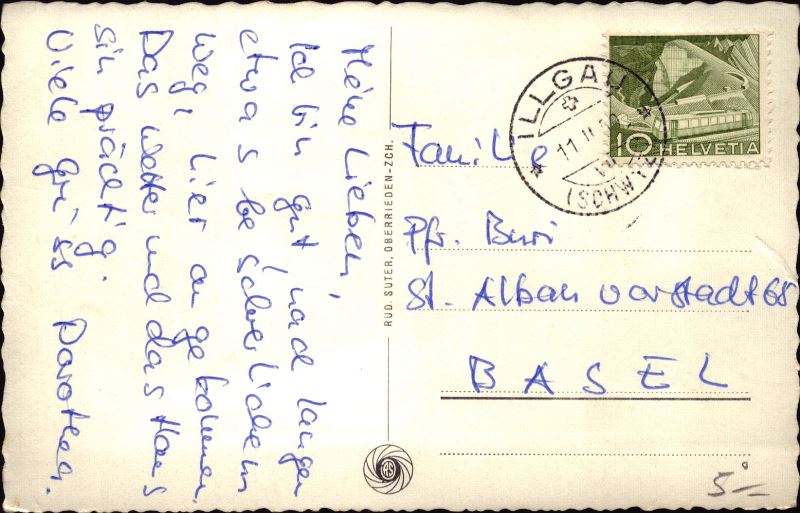 Meine Lieben,
Ich bin gut, nach langem
etwas beschwerlichem
Weg, hier angekommen.
Das Wetter und das Haus
sin prächtig.
Viele Grüss Dorothea.
RUD. SUTER, OBERRIEDEN-ZCH.
ILLGAU
11.II.
(SCHWYZ)
10 HELVETIA
Familie
Pfr. Buri
St. Alban vorstadt 65
BASEL
RS
5.-